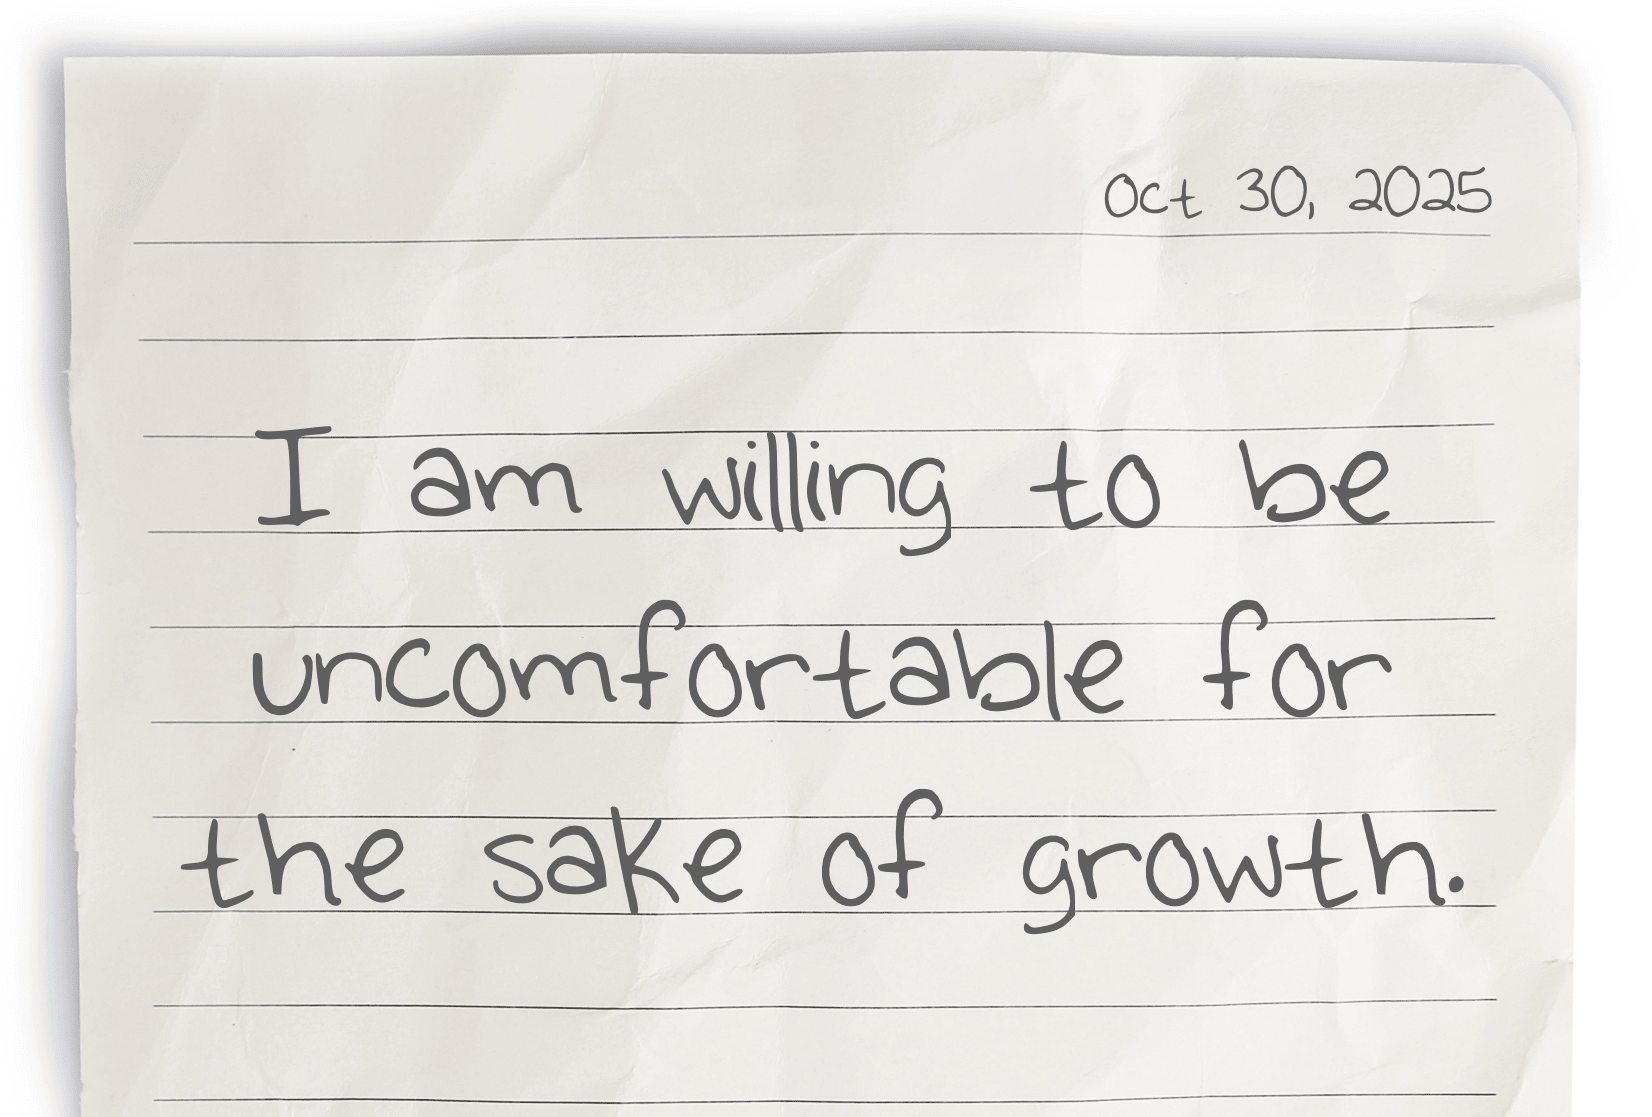 Oct 30, 2025
I am willing to be
uncomfortable for
the sake of growth.